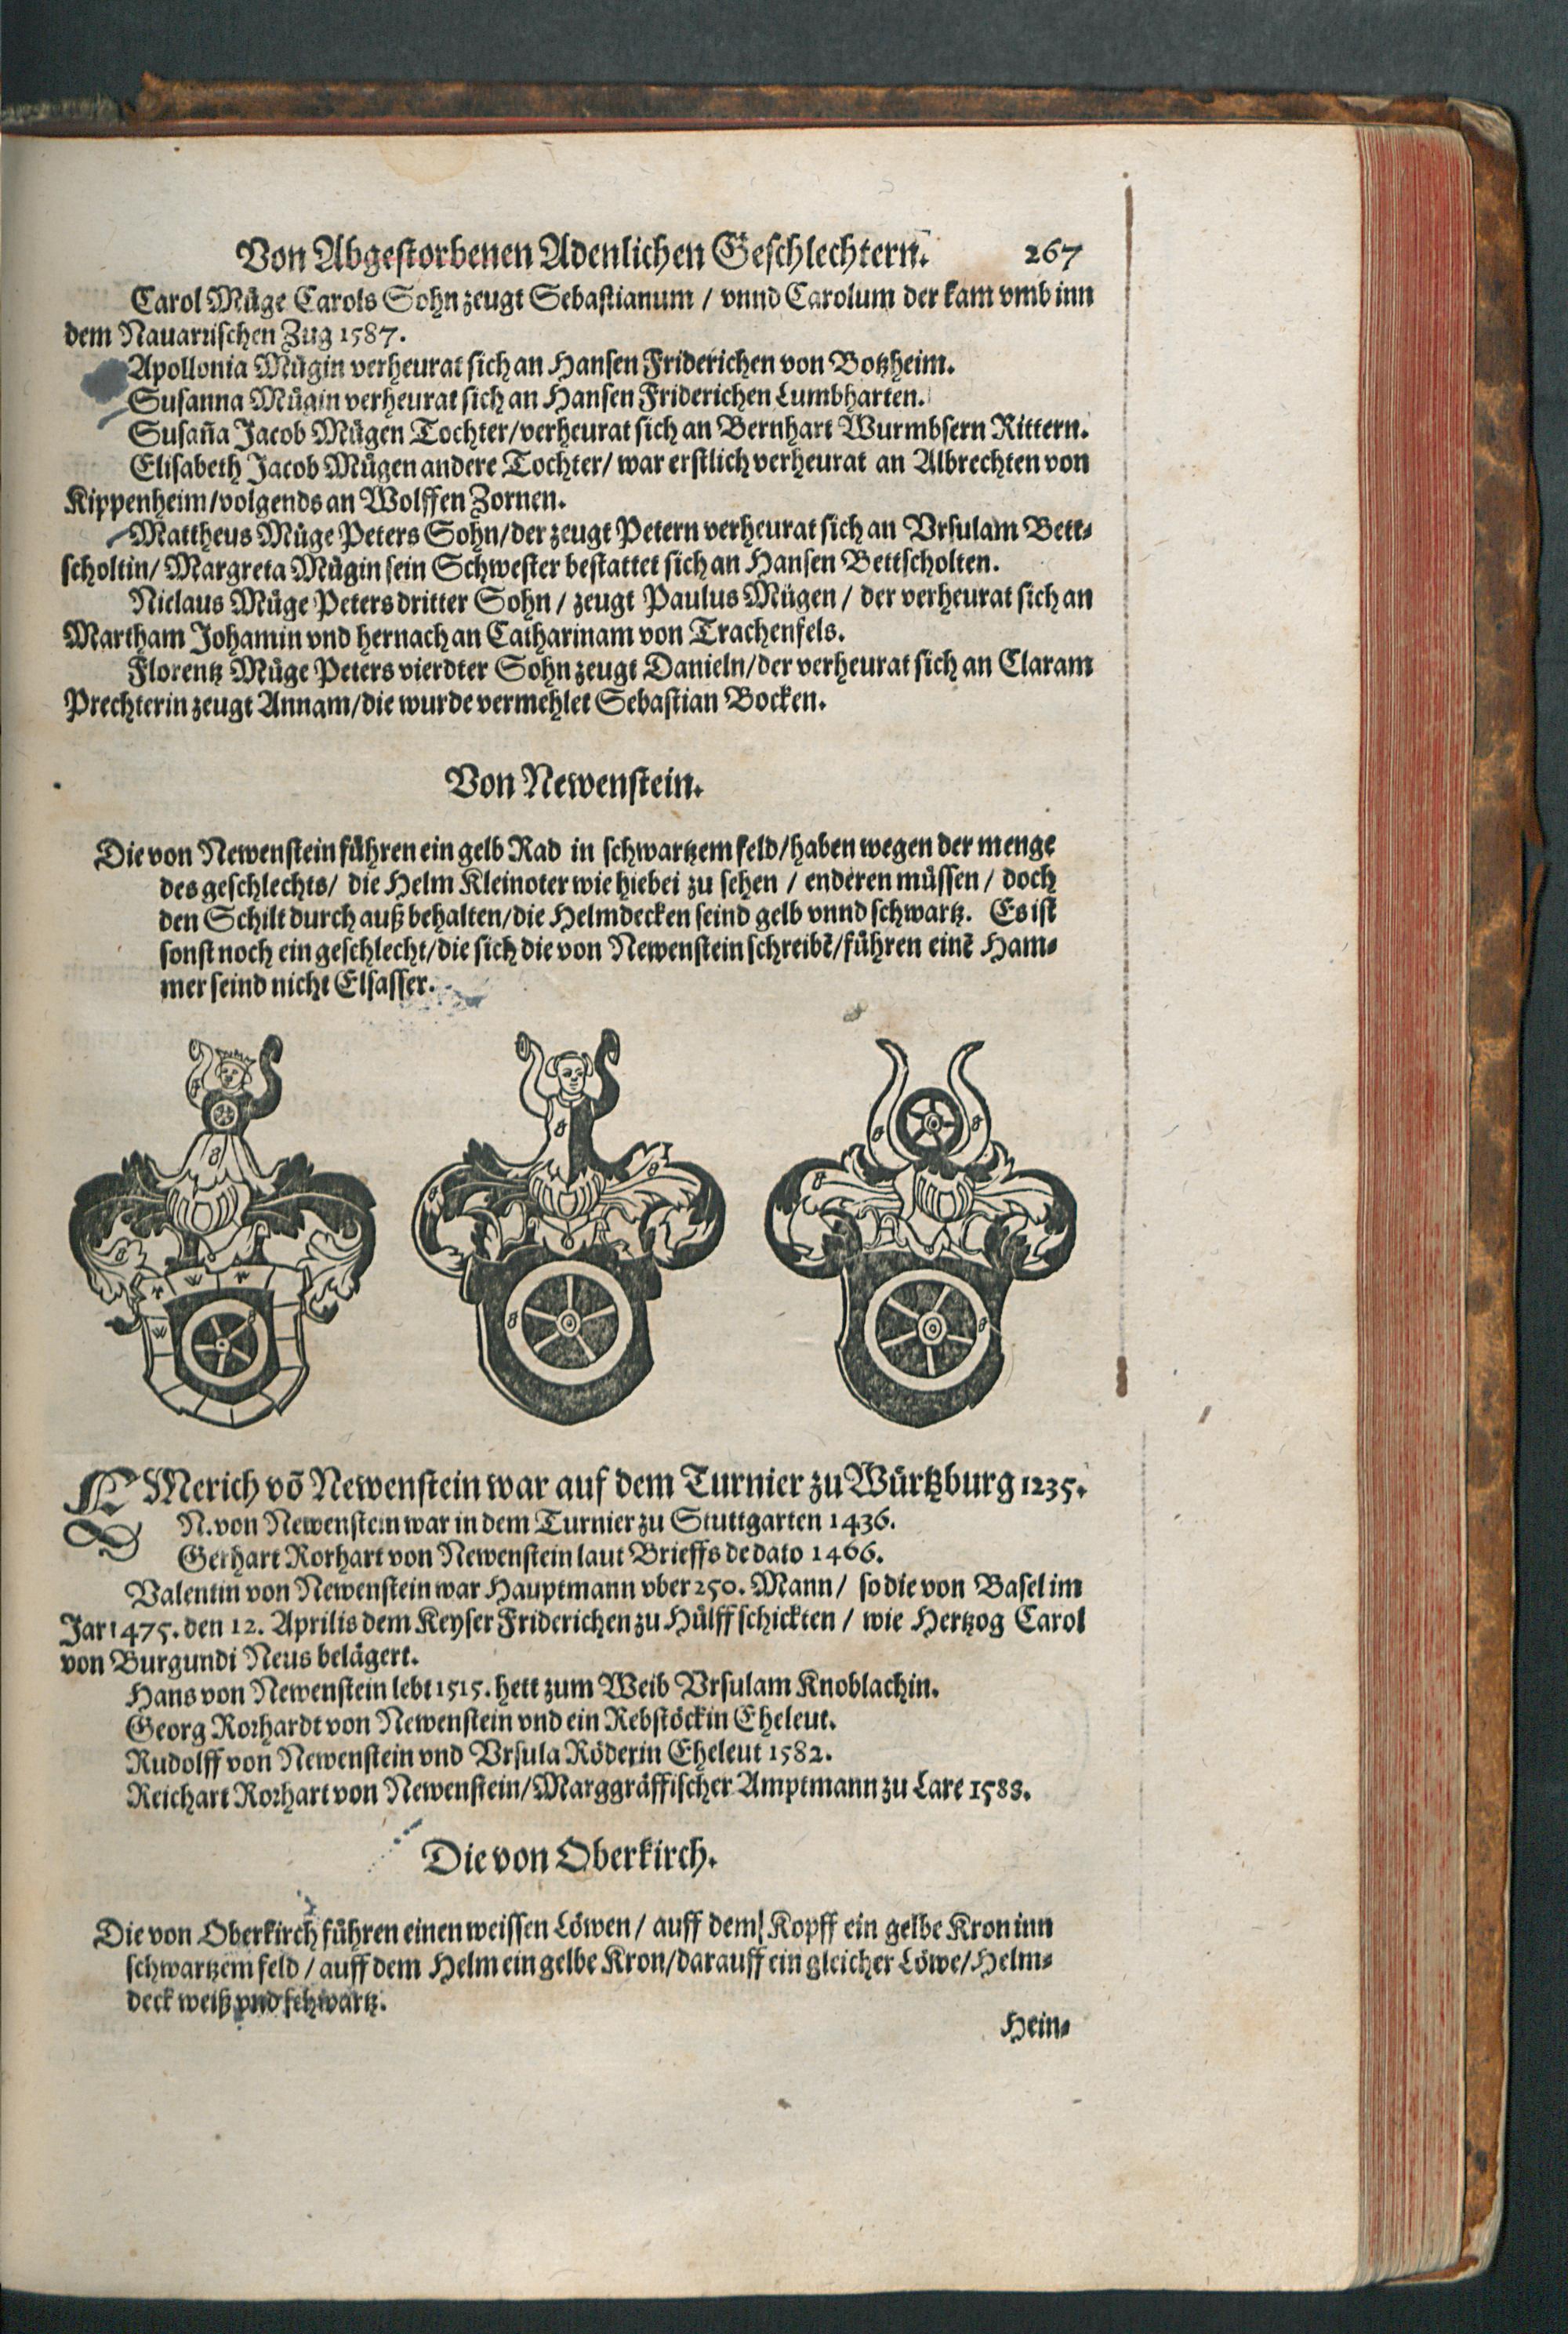 Von Abgestorbenen Adenlichen Geschlechtern. 267
Carol Müge Carols Sohn zeugt Sebastianum / vnnd Carolum der kam vmb inn
dem Nauarrischen Zug 1587.
Apollonia Mügin verheurat sich an Hansen Friderichen von Botzheim.
Susanna Mügin verheurat sich an Hansen Friderichen Lumbharten.
Susañа Jacob Mügen Tochter/verheurat sich an Bernhart Wurmbsern Rittern.
Elisabeth Jacob Mügen andere Tochter/ war erstlich verheurat an Albrechten von
Kippenheim/volgends an Wolffen Zornen.
Mattheus Müge Peters Sohn/der zeugt Petern verheurat sich an Vrsulam Bett⸗
scholtin/ Margreta Mügin sein Schwester bestattet sich an Hansen Bettscholten.
Niclaus Müge Peters dritter Sohn / zeugt Paulus Mügen / der verheurat sich an
Martham Johamin vnd hernach an Catharinam von Trachenfels.
Florentz Müge Peters vierdter Sohn zeugt Danieln/der verheurat sich an Claram
Prechterin zeugt Annam/die wurde vermehlet Sebastian Bocken.
Von Newenstein.
Die von Newenstein führen ein gelb Rad in schwartzem feld/haben wegen der menge
des geschlechts/ die Helm Kleinoter wie hiebei zu sehen / enderen müssen / doch
den Schilt durch auß behalten/die Helmdecken seind gelb vnnd schwartz. Es ist
sonst noch ein geschlecht/die sich die von Newenstein schreibē/führen einē Ham⸗
mer seind nicht Elsasser.
EMerich võ Newenstein war auf dem Turnier zu Würtzburg 1235.
N. von Newenstein war in dem Turnier zu Stuttgarten 1436.
Gerhart Rorhart von Newenstein laut Brieffs de dato 1466.
Valentin von Newenstein war Hauptmann vber 250. Mann/ so die von Basel im
Jar 1475. den 12. Aprilis dem Keyser Friderichen zu Hülff schickten / wie Hertzog Carol
von Burgundi Neus belägert.
Hans von Newenstein lebt 1515. hett zum Weib Vrsulam Knoblachin.
Georg Rorhardt von Newenstein vnd ein Rebstöckin Eheleut.
Rudolff von Newenstein vnd Vrsula Röderin Eheleut 1582.
Reichart Rorhart von Newenstein/Marggräffischer Amptmann zu Lare 1588.
Die von Oberkirch.
Die von Oberkirch führen einen weissen Löwen / auff dem Kopff ein gelbe Kron inn
schwartzem feld / auff dem Helm ein gelbe Kron/darauff ein gleicher Löwe/Helm⸗
deck weiß vnd schwartz.
Hein⸗